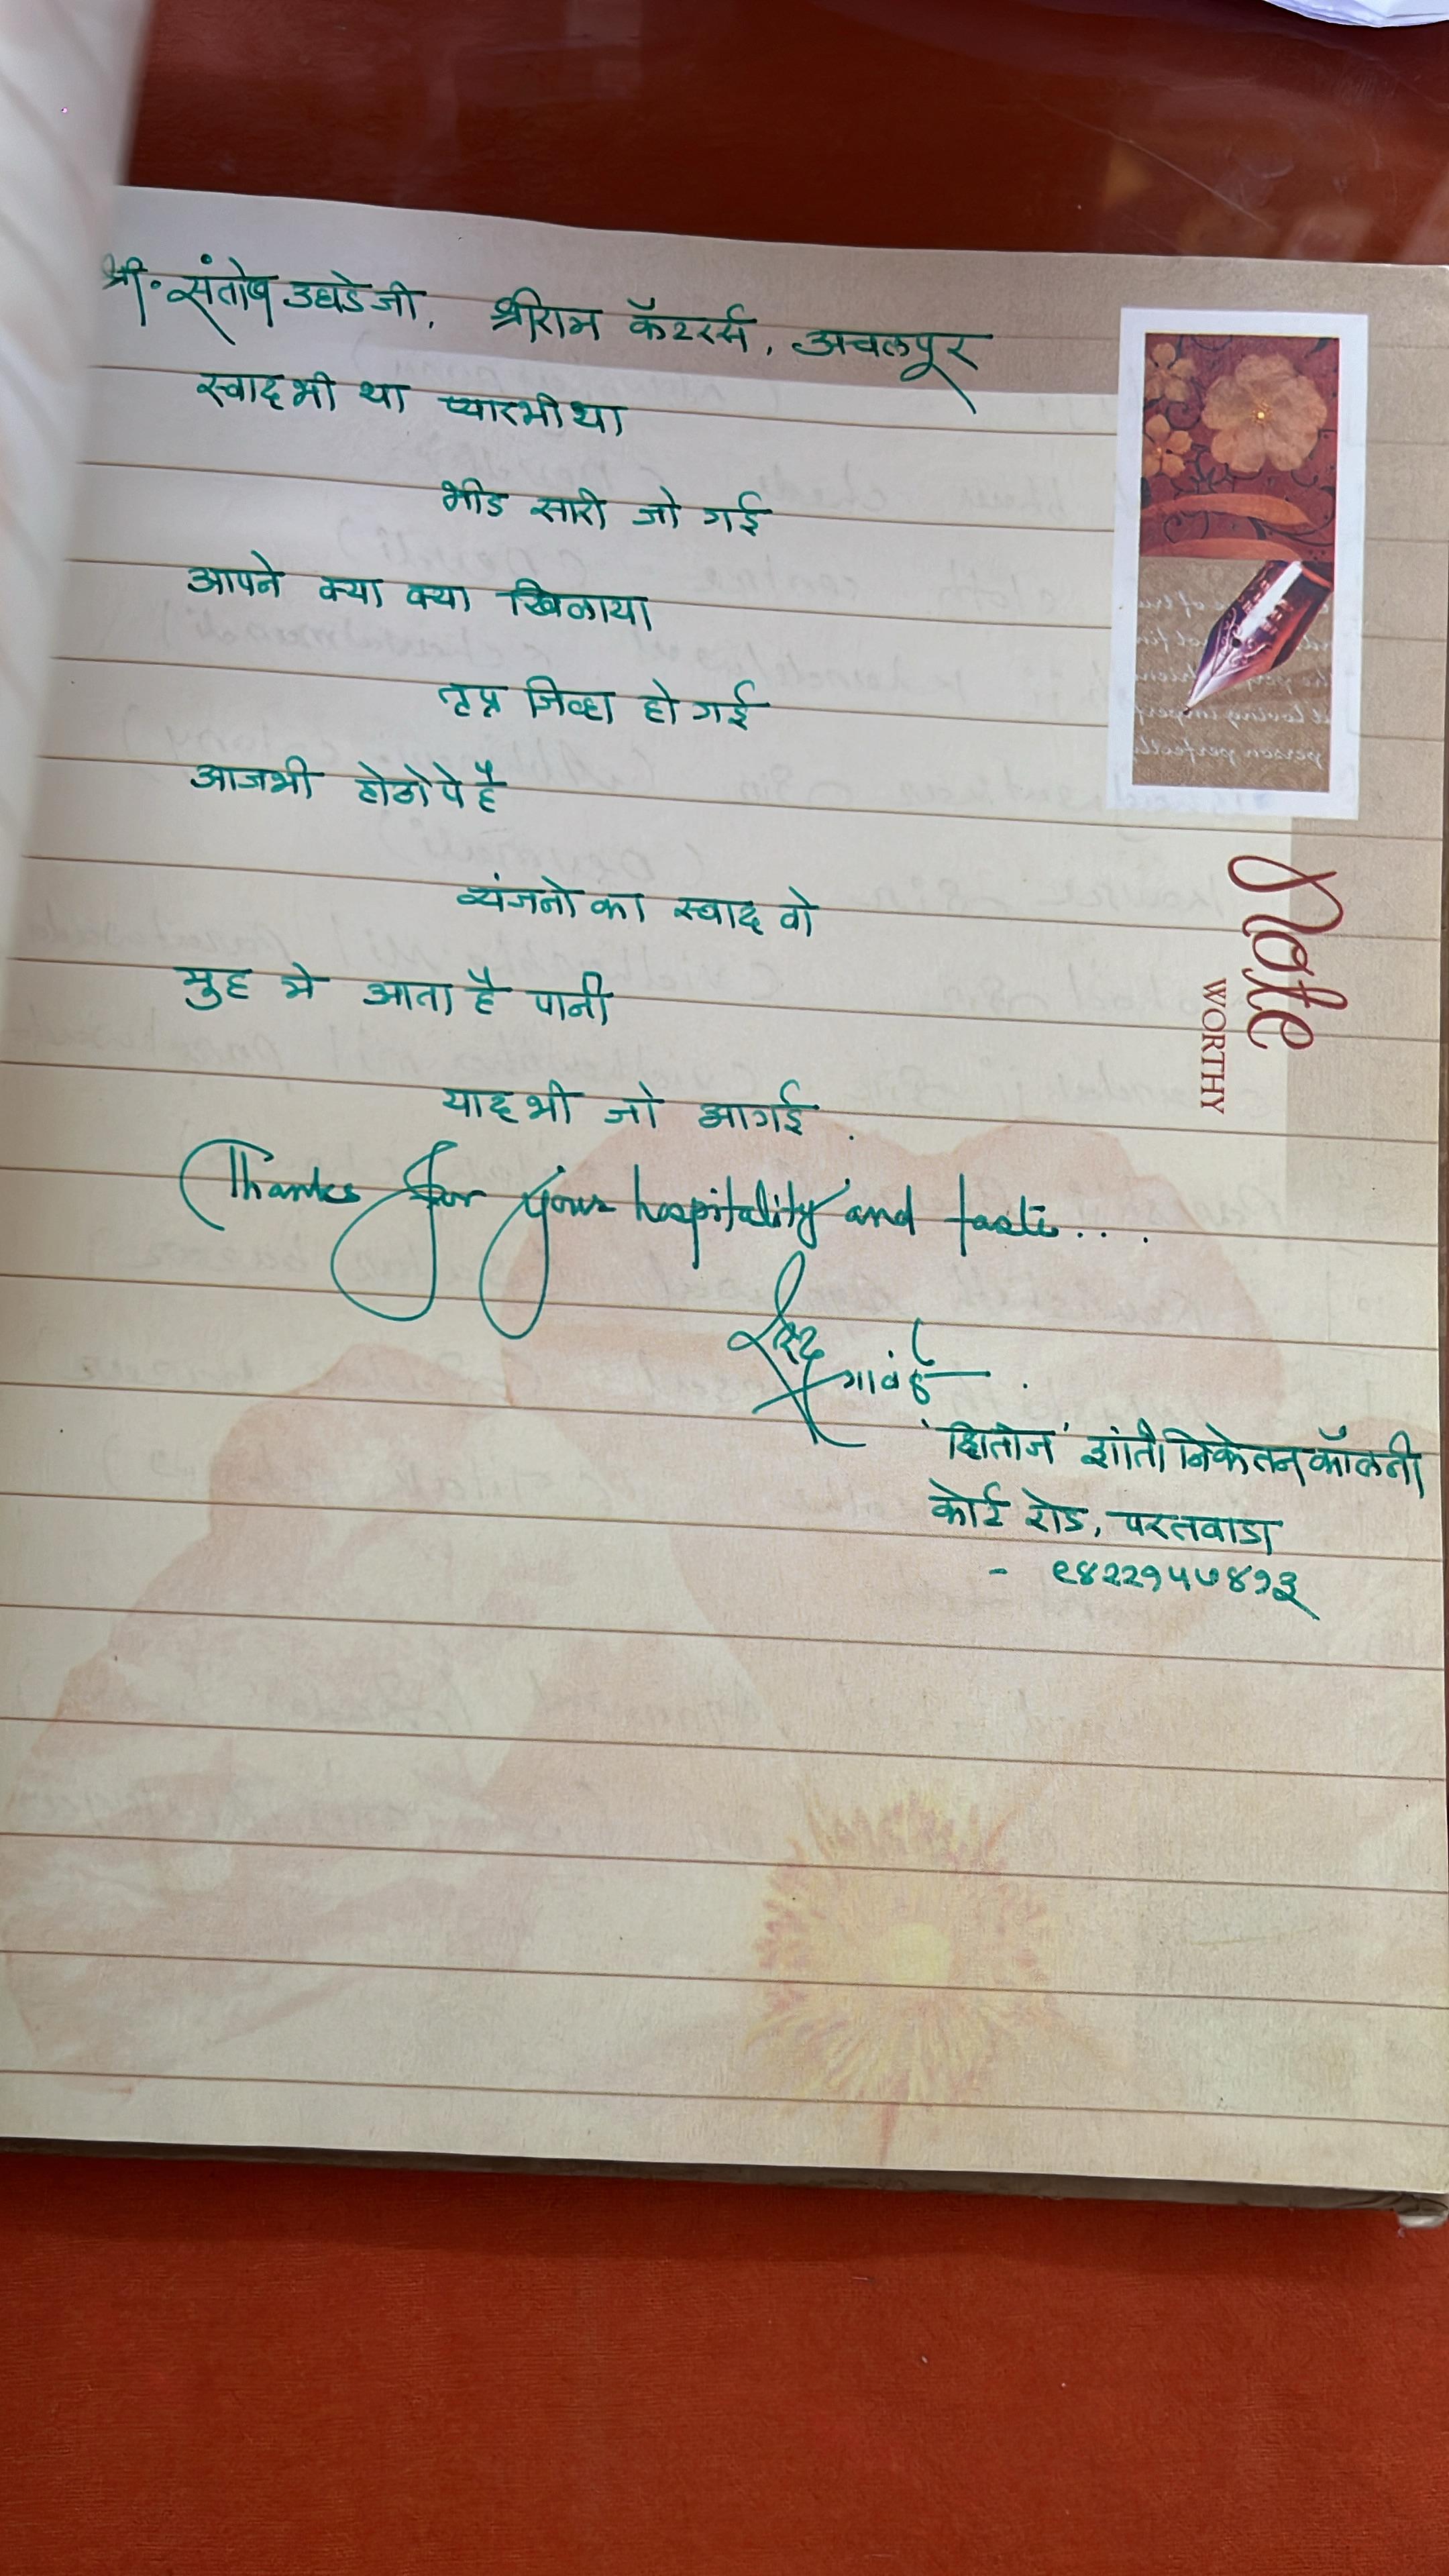 श्री. संतोष उघडे जी, श्रीराम कॅटरर्स, अचलपूर
स्वाद भी था प्यार भी था
भीड सारी जो गई
आपने क्या क्या खिलाया
तृप्त जिव्हा हो गई
आजभी होठो पे है
व्यंजनो का स्वाद वो
मुह मे आता है पानी
याद भी जो आगई.
Thanks for your hospitality and taste....
गावंडे
'क्षितीज' शांती निकेतन कॉलनी
कोर्ट रोड, परतवाडा
- ९४२२१५७४१३
Note
WORTHY